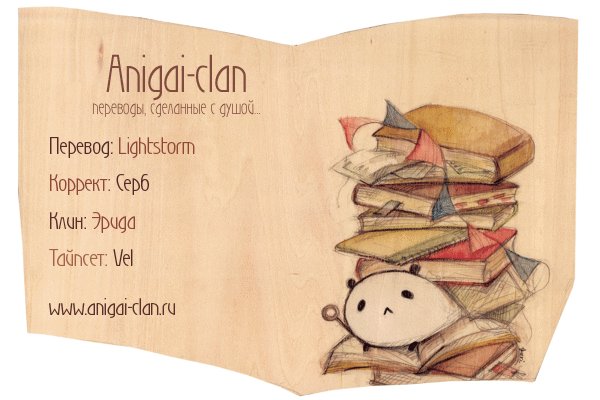 Anigai-clan
переводы, сделанные с душой...
Перевод: Lightstorm
Коррект: Серб
Клин: Эрида
Тайпсет: Vel
www.anigai-clan.ru